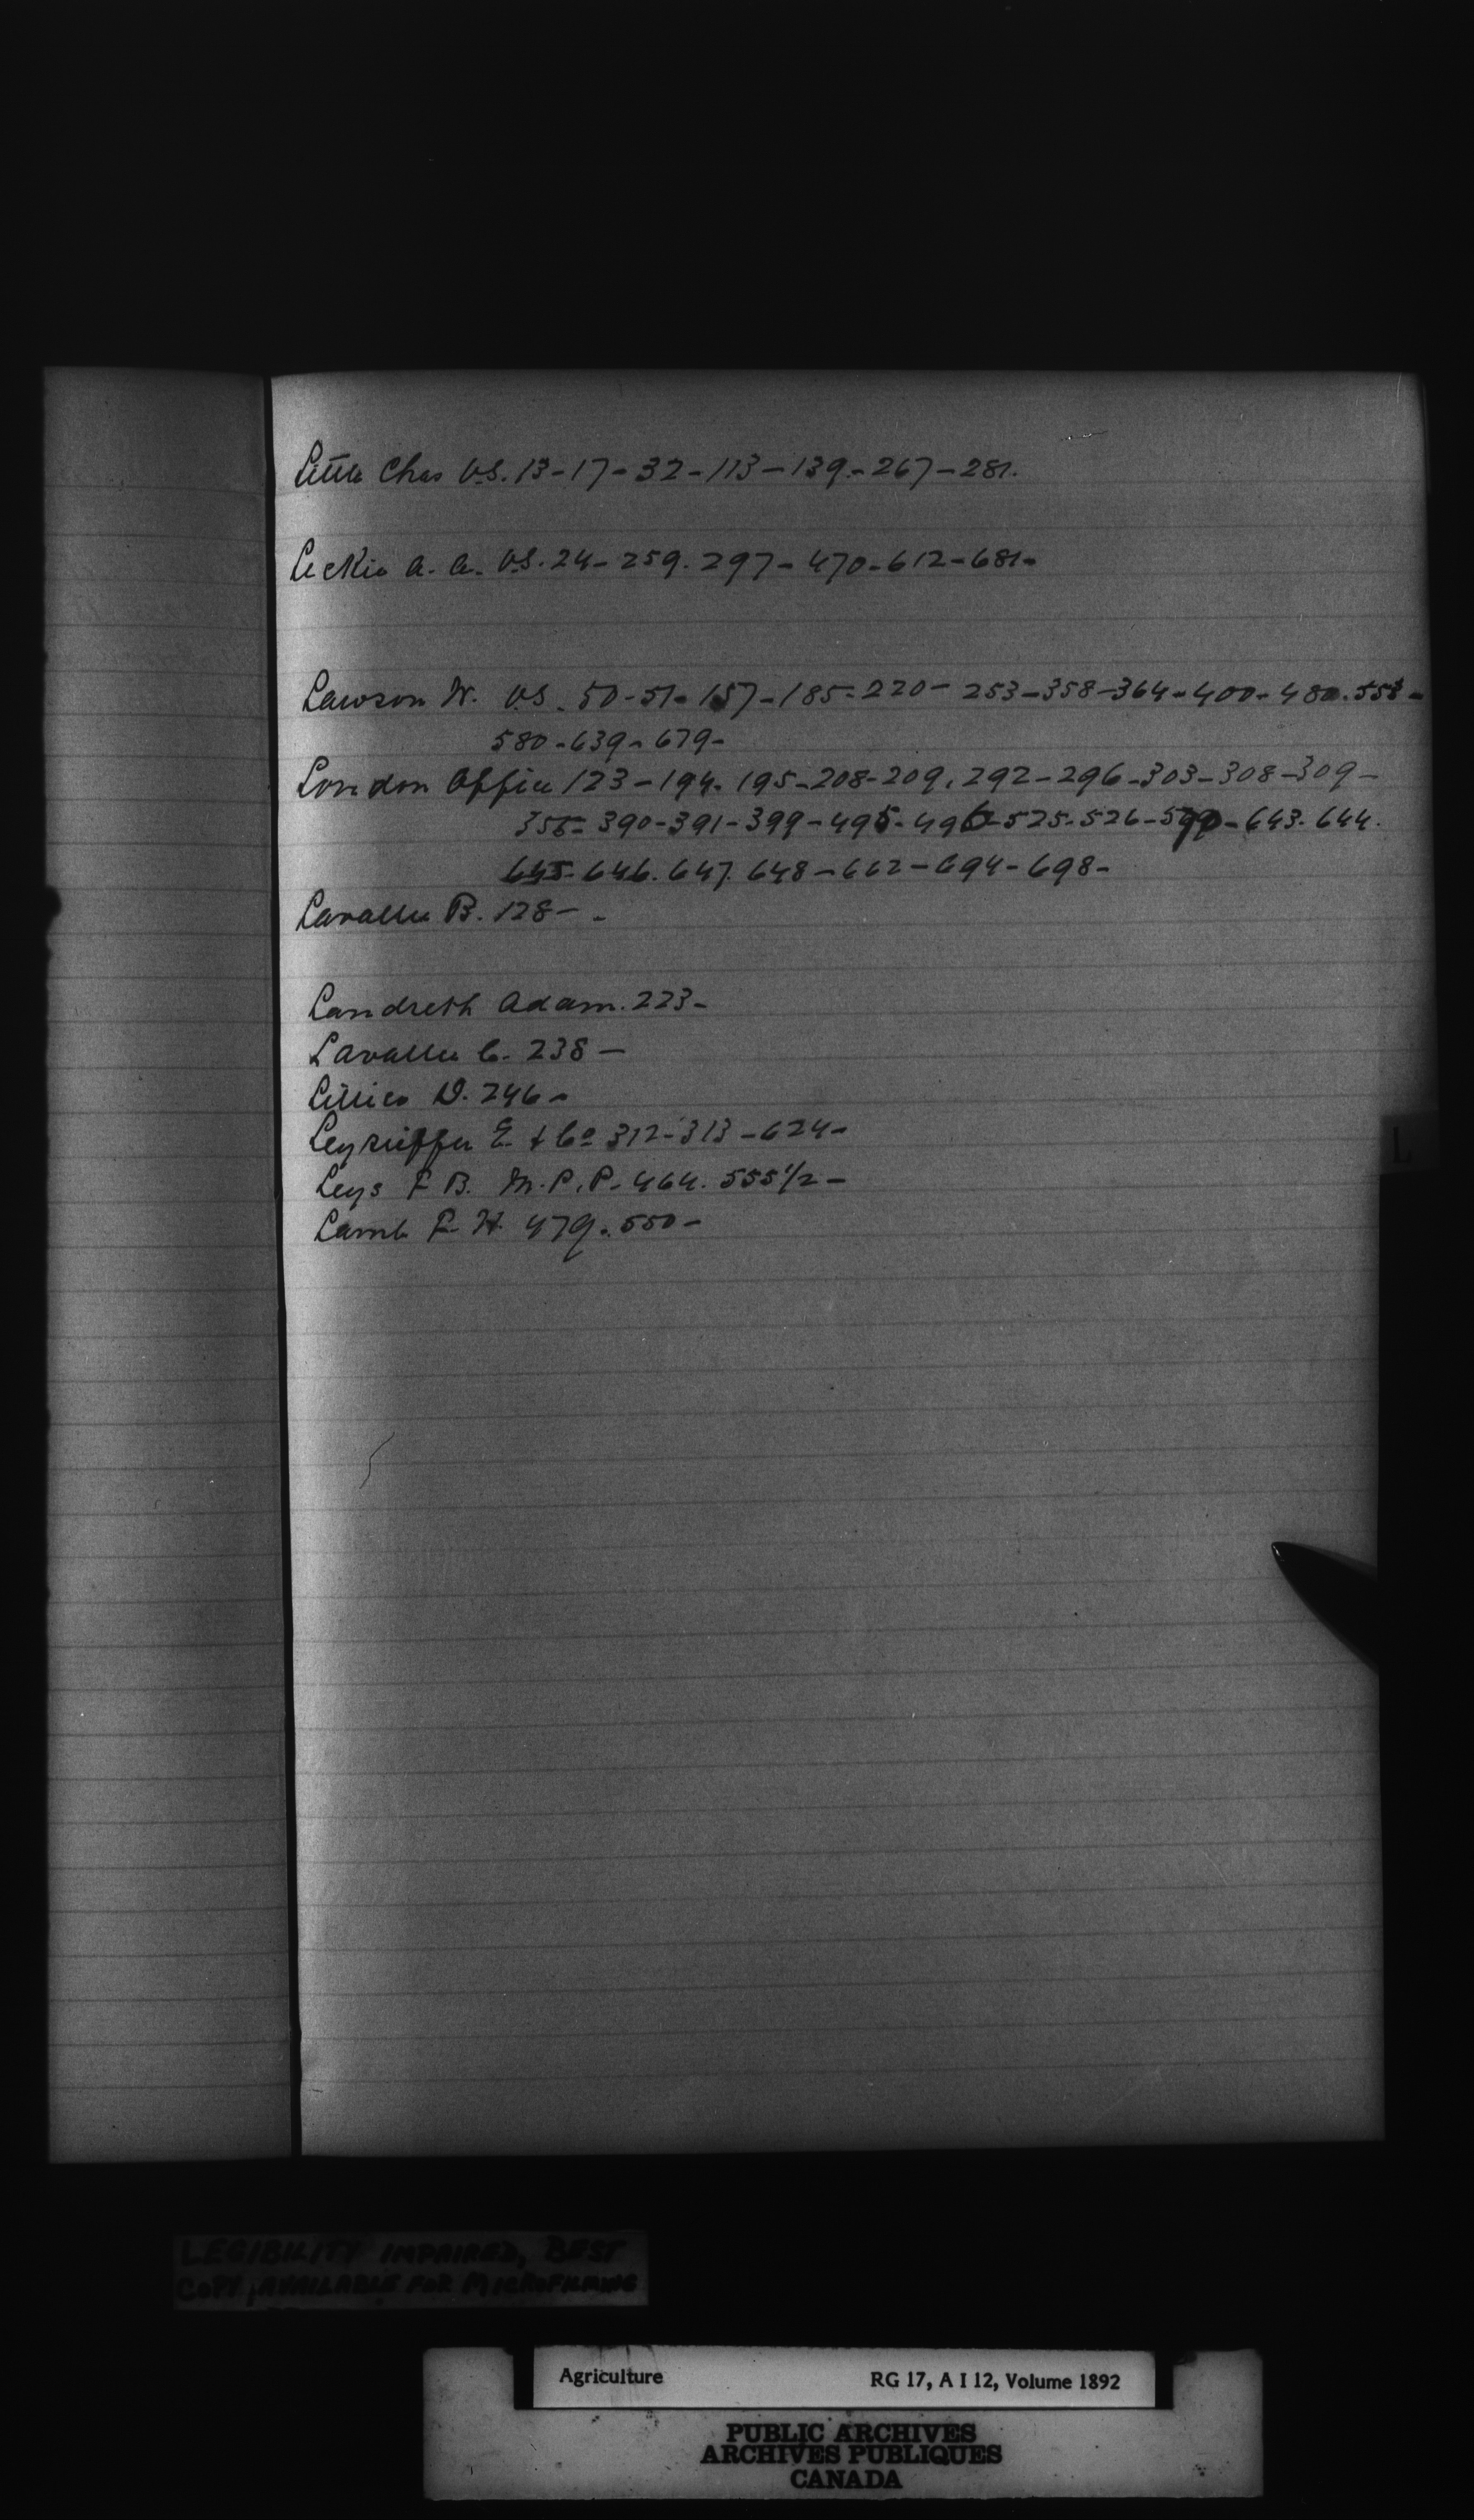 Little Chas V.S. 13-17-32-113-139-267-281.
Leckie A. A. V.S. 24-259.297-470-612-681-
Lawson W. V.S. 50-51-157-185-220-253-358-364-400-480.558-
580-639-679-
London Office 123-194.195-208-209.292-296-303-308-309-
356-390-391-399-495-496-525-526-   -643.644.
645-646.647.648-662-694-698-
Lavallee B. 128-
Landreth Adam. 223-
Lavallee C. 238-
Lillico D. 246-
Leyriffer E. & Co 312-313-624-
Leys F B. M.P.P. 464. 555 1/2-
Lamb F. H. 479.550-
L
LEGIBILITY IMPAIRED, BEST
COPY AVAILABLE FOR MICROFILMING
Agriculture RG 17, A I 12, Volume 1892
PUBLIC ARCHIVES
ARCHIVES PUBLIQUES
CANADA